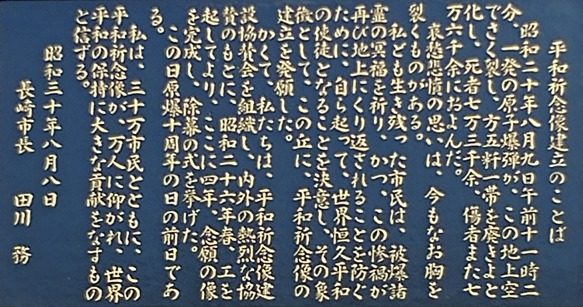 平和祈念像建立のことば
昭和二十年八月九日午前十一時二
分、一発の原子爆弾が、この地上空
でさく裂し、方五粁一帯を廃きよと
化し、死者七万三千余、傷者また七
万六千余におよんだ。
哀愁悲憤の思いは、今もなお胸を
裂くものがある。
私ども生き残った市民は、被爆諸
霊の冥福を祈り、かつ、この惨禍が
再び地上にくり返されることを防ぐ
ために、自ら起って、世界恒久平和
の使徒となることを決意し、その象
徴として、この丘に、平和祈念像の
建立を発願した。
かくて、私たちは、平和祈念像建
設協賛会を組織し、内外の熱烈な協
賛のもとに、昭和二十六年春、工を
起してより、ここに四年、念願の像
を完成し、除幕の式を挙げた。
この日原爆十周年の日の前日であ
る。
私は、三十万市民とともに、この
平和祈念像が、万人に仰がれ、世界
平和の保持に大きな貢献をなすもの
と信ずる。
昭和三十年八月八日
長崎市長 田川務